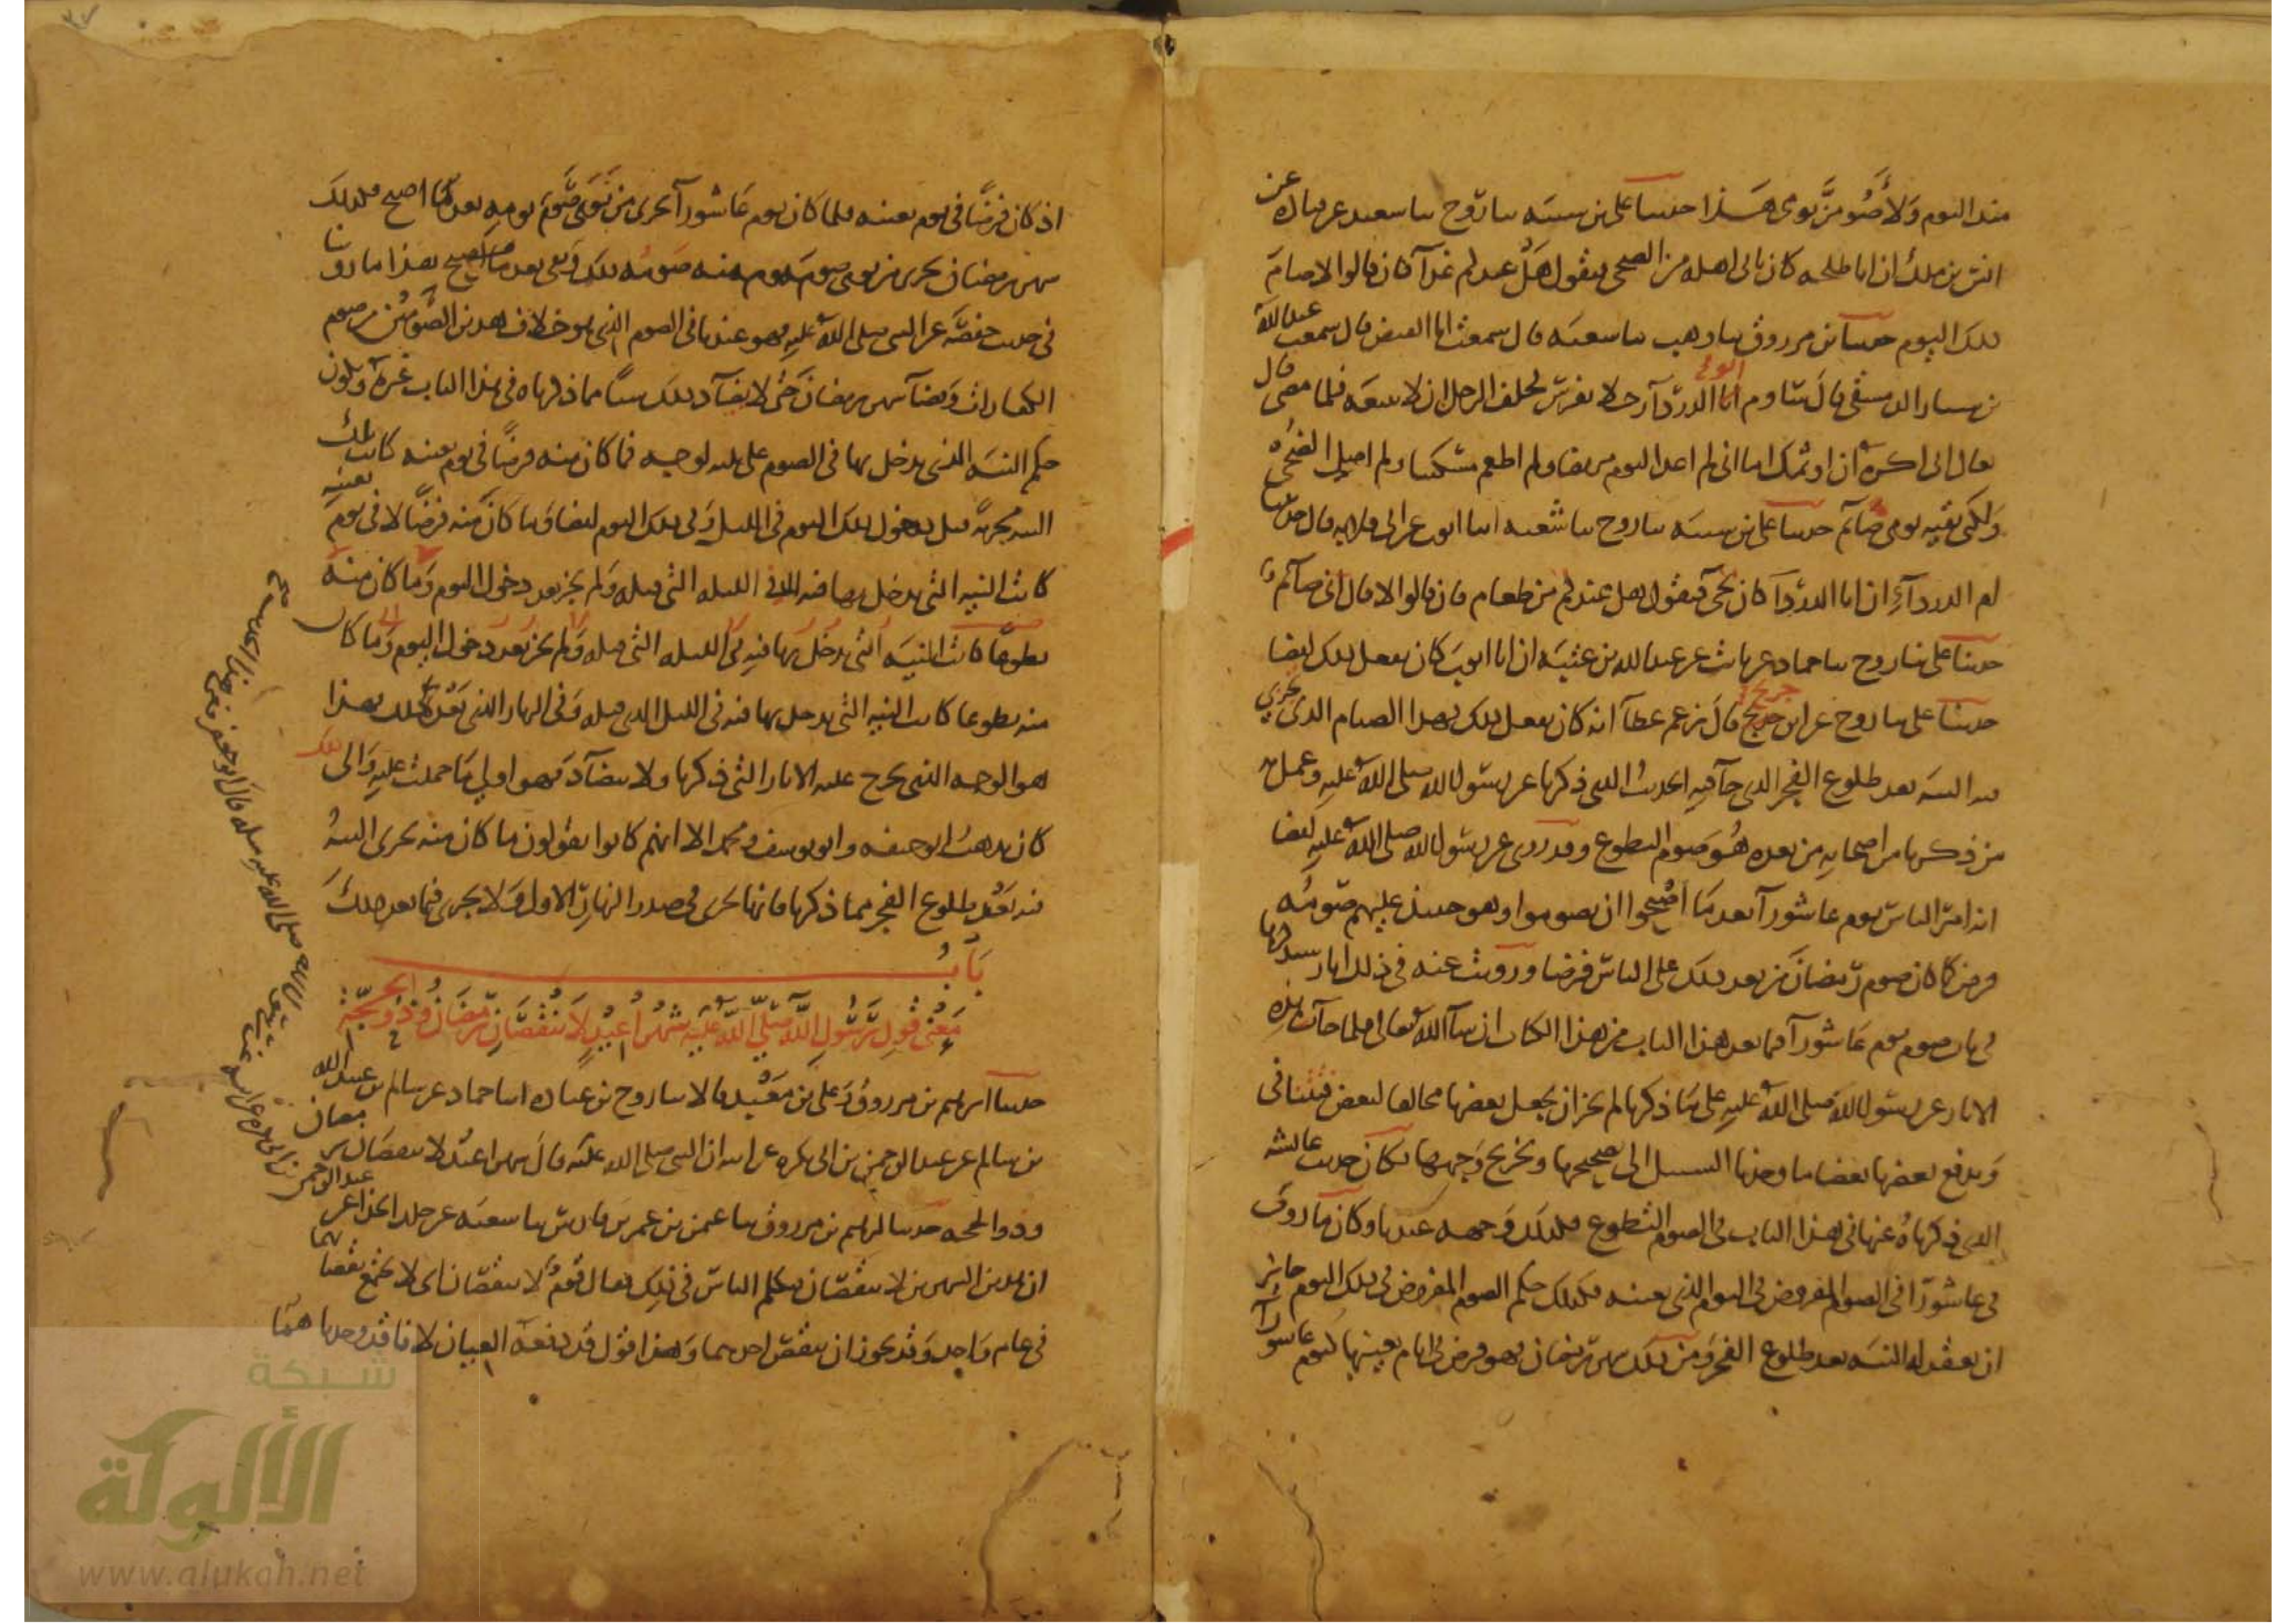 منذ اليوم ولأصومن يومى هذا حدثنا على بن شيبه ثنا روح ثنا سعيد عن قتاده عن
انس بن ملك ان ابا طلحه كان ياتى اهله من الضحى فيقول هل عندكم غدآ فان قالوا لا صام
ذلك اليوم حدثنا بن مرزوق ثنا وهب ثنا شعبه قال سمعت ابا الفيض قال سمعت عبدالله
بن سيار الدمشقى قال ساوم ابا الدردآ رجلا بفرس فحلف الرجل ان لا يبيعه فلما مضى قال
تعال انى اكره ان اوثمك اما انى لم اعد اليوم مريضا ولم اطعم مسكينا ولم اصل الضحى
ولكنى بقيه يومى صآئم حدثنا على بن شيبه ثنا روح ثنا شعبه انبا ايوب عن ابى قلابه قال حدثتنا
ام الدردآء ان ابا الدردآ كان يجى فيقول هل عندكم من طعام فان قالوا لا قال انى صآئم
حدثنا على ثنا روح ثنا حماد عن ثابت عن عبدالله بن عتبه ان ابا ايوب كان يفعل ذلك ايضا
حدثنا على ثنا روح عن ابن جريج قال زعم عطآ انه كان يفعل ذلك فهذا الصيام الذى تجزى
فيه النيه بعد طلوع الفجر الذى جآ فيه الحديث الذى ذكرنا عن رسول الله صلى الله عليه وعمل به
من ذكرنا من اصحابه من بعده هو صوم التطوع وقد روى عن رسول الله صلى الله عليه ايضا
انه امر الناس يوم عاشورآ بعد ما اصبحوا ان يصوموا وهو حينئذ عليهم صومه
فرض كما كان صوم رمضان من بعد ذلك على الناس فرضا ورويت عنه فى ذلك اثار سنذكرها
فى باب صوم يوم عاشورآ فيما بعد هذا الباب من هذا الكتاب ان شآ الله تعالى فلما جآت هذه
الاثار عن رسول الله صلى الله عليه على ما ذكرنا لم يجز ان يجعل بعضها مخالفا لبعض فتتنافى
ويدفع بعضها بعضا ما وجدنا السبيل الى تصحيحها وتخريج وجهها فكان حديث عائشه
الذى ذكرناه عنها فى هذا الباب فى الصوم التطوع فكذلك وجهه عندنا وكان ما روى
فى عاشورآ فى الصوم المفروض فى اليوم الذى بعينه فكذلك حكم الصوم المفروض فى ذلك اليوم جائز
ان يعقد له النيه بعد طلوع الفجر ومن ذلك شهر رمضان فهو فرض فى ايام بعينها كيوم عاشورآ
اذ كان فرضا فى يوم بعينه فلما كان يوم عاشورآ يجزى من نوى صوم يومه بعد ما اصبح فكذلك
شهر رمضان يجزى من نوى صوم يوم منه صومه ذلك وبقى بعد ما اصبح بهذا ما روينا
فى حديث حفصه عن النبى صلى الله عليه فهو عندنا فى الصوم الذى هو خلاف هذين الصومين من صوم
الكفارات وقضآ شهر رمضان حتى لا يضآد ذلك شيئا مما ذكرناه فى هذا الباب غيره ويكون
حكم النيه التى يدخل بها فى الصوم على ثلثه اوجه فما كان منه فرضا فى يوم بعينه كانت تلك
النيه مجزئة قبل دخول ذلك اليوم فى الليل وفى ذلك اليوم ايضا وما كان منه فرضا لا فى يوم بعينه
كانت النيه التى يدخل بها فيه فى الليله التى قبله ولم يجز بعد دخول اليوم وما كان منه
تطوعا كانت النيه التى يدخل بها فيه فى الليله التى قبله ولم يجز بعد دخول اليوم وما كان
منه تطوعا كانت النيه التى يدخل بها فيه فى الليل الذى قبله وفى النهار الذى بعد ذلك فهذا
هو الوجه الذى يخرج عليه الاثار التى ذكرنا ولا يتضآد فهو اولى ما حملت عليه والى ذلك
كان يذهب ابو حنيفه وابو يوسف ومحمد الا انهم كانوا يقولون ما كان منه يجزى النيه
فيه بعد طلوع الفجر مما ذكرنا فانها تجزى فى صدر النهار الاول ولا يجزى فيما بعد ذلك
باب
معنى قول رسول الله صلى الله عليه شهرا عيد لا ينقصان رمضان وذو الحجة
حدثنا ابرهيم بن مرزوق وعلى بن معبد قالا ثنا روح بن عباده انبا حماد عن سالم بن عبيد الله
بن سالم عن عبد الرحمن بن ابى بكره عن ابيه ان النبى صلى الله عليه قال شهرا عيد لا ينقصان رمضان
وذو الحجه حدثنا ابرهيم بن مرزوق ثنا عثمن بن عمر بن فارس ثنا شعبه عن خلد الحذا عن عبد الرحمن
ان هذين الشهرين لا ينقصان فتكلم الناس فى ذلك فقال قوم لا ينقصان اى لا يجتمع نقصانهما
فى عام واحد وقد يجوز ان ينقص احدهما وهذا قول قد دفعه العيان لانا قد وجدناهما
بن ابى بكره عن ابيه عن النبى صلى الله عليه مثله قال ابو جعفر ففى هذا الحديث
شبكة
الألوكة
www.alukah.net